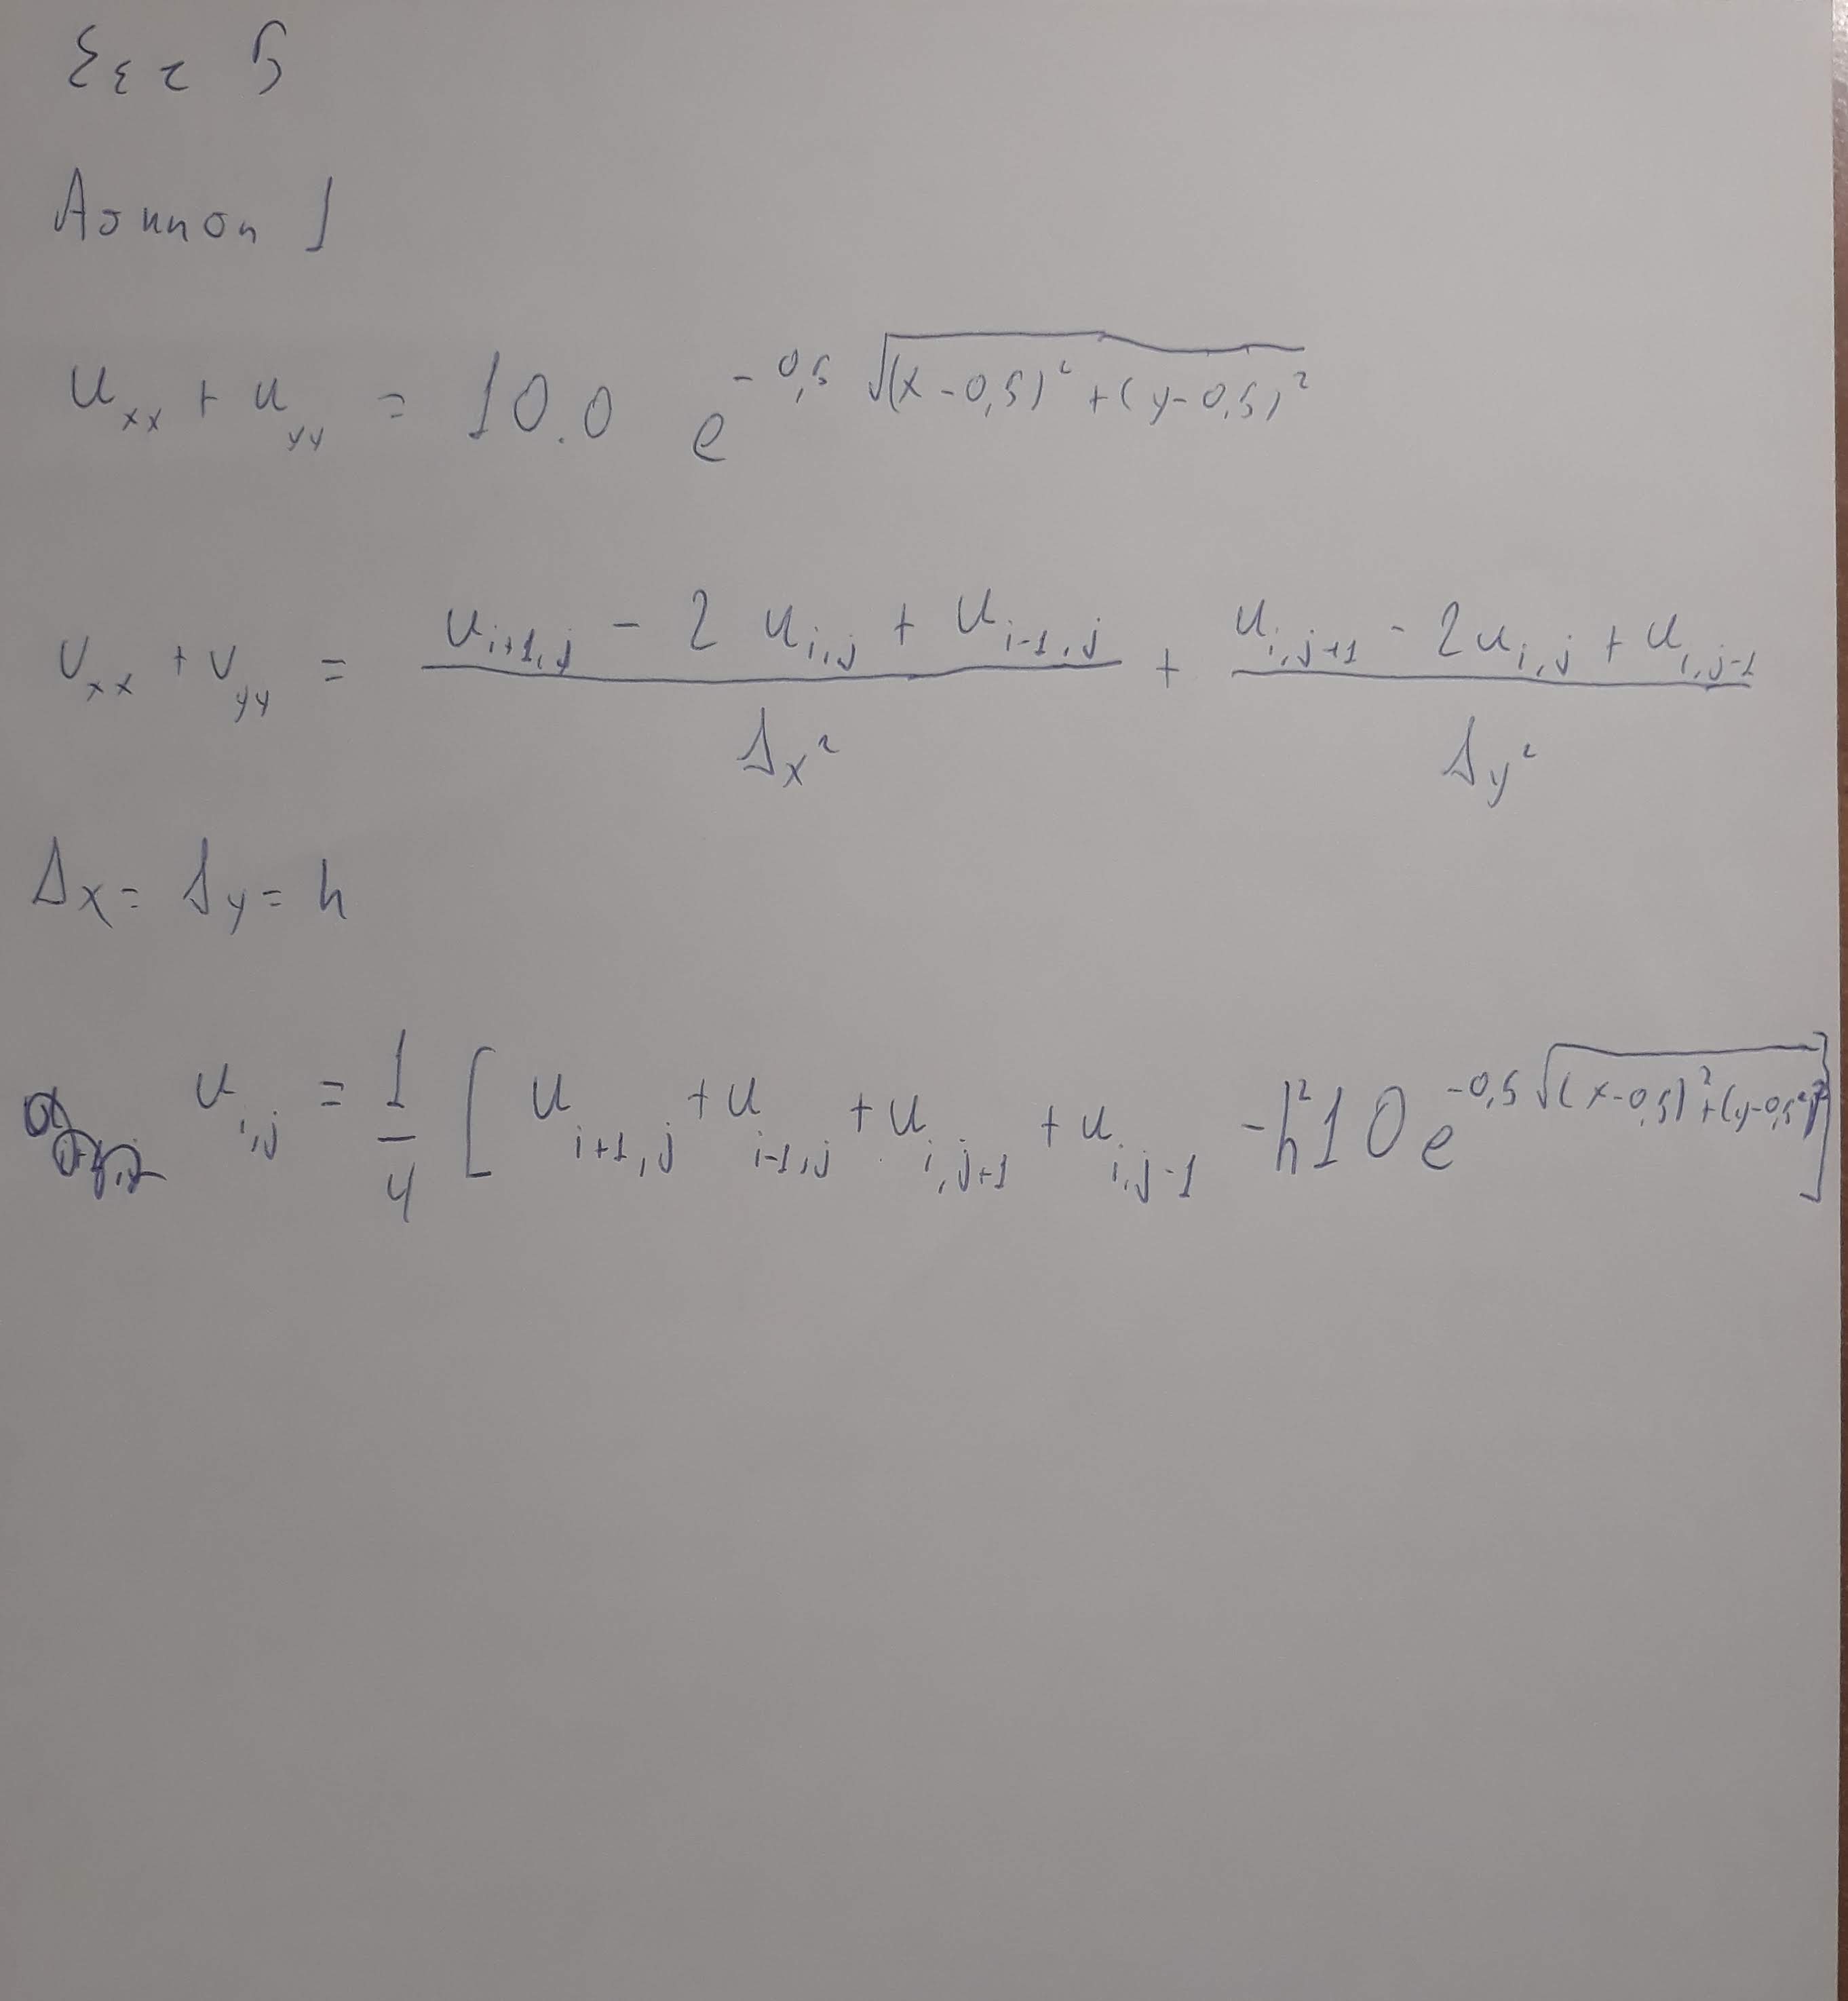 Σετ 5
Άσκηση 1
u_xx + u_yy = 10.0 e^{-0,5 √((x-0,5)² + (y-0,5)²)}
u_xx + u_yy = (u_{i+1,j} - 2 u_{i,j} + u_{i-1,j}) / Δx² + (u_{i,j+1} - 2u_{i,j} + u_{i,j-1}) / Δy²
Δx = Δy = h
u_{i,j} = 1/4 [ u_{i+1,j} + u_{i-1,j} + u_{i,j+1} + u_{i,j-1} - h² 10 e^{-0,5 √((x-0,5)² + (y-0,5)²)} ]